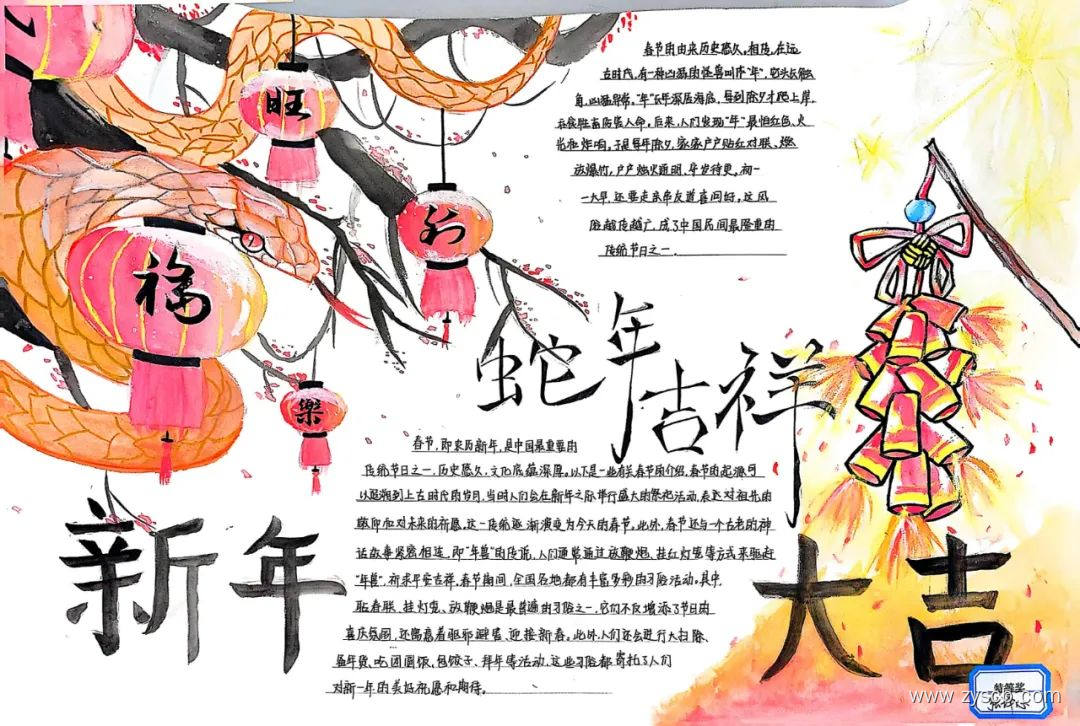 春节的由来历史悠久。相传，在远
古时代，有一种凶猛的怪兽叫作"年"，它头长触
角，凶猛异常。"年"长年深居海底，每到除夕才爬上岸，
吞食牲畜伤害人命。后来，人们发现"年"最怕红色、火
光和炸响。于是每年除夕，家家户户贴红对联、燃
放爆竹，户户烛火通明，守岁待更。初一
一大早，还要走亲串友道喜问好。这风
俗越传越广，成了中国民间最隆重的
传统节日之一.
旺
行
福
樂
蛇年吉祥
春节，即农历新年，是中国最重要的
传统节日之一，历史悠久，文化底蕴深厚。以下是一些有关春节的介绍，春节的起源可
以追溯到上古时代的岁月，当时人们会在新年之际举行盛大的祭祀活动，表达对祖先的
敬仰和对未来的祈愿。这一传统逐渐演变为今天的春节。此外，春节还与一个古老的神
话故事紧密相连，即"年兽"的传说，人们通常通过放鞭炮、挂红灯笼等方式来驱赶
"年兽"，祈求平安吉祥，春节期间，全国各地都有丰富多彩的习俗活动。其中，
贴春联、挂灯笼、放鞭炮是最普遍的习俗之一，它们不仅增添了节日的
喜庆氛围，还寓意着驱邪避害、迎接新春。此外，人们还会进行大扫除、
备年货、吃团圆饭、包饺子、拜年等活动，这些习俗都寄托了人们
对新一年的美好祝愿和期待。
新年
大吉
特等奖
www.zysco.com